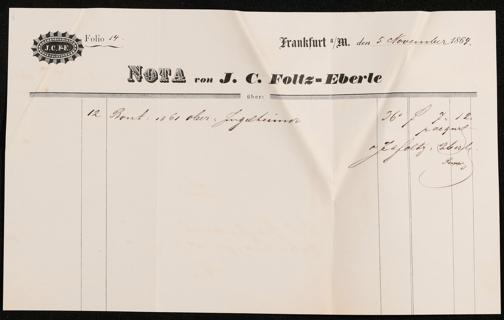 J.C.F.E.
Folio 14.
Frankfurt a/M. den 5 November 1864.
NOTA von J. C. Foltz=Eberle
über:
12 Bout. 1861 Ober-Ingelheimer 36 f 7.12.
J C Foltz-Eberle